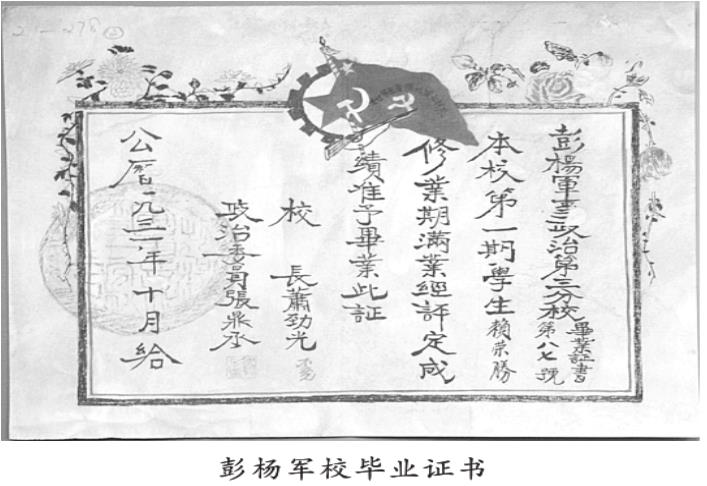 彭楊軍事政治第三分校畢業証書第八七號
本校第一期學生賴荣勝
修業期滿業經評定成
績准予畢業此証
校長蕭勁光
政治委員張鼎丞
公曆一九三一年十月給
彭杨军校毕业证书